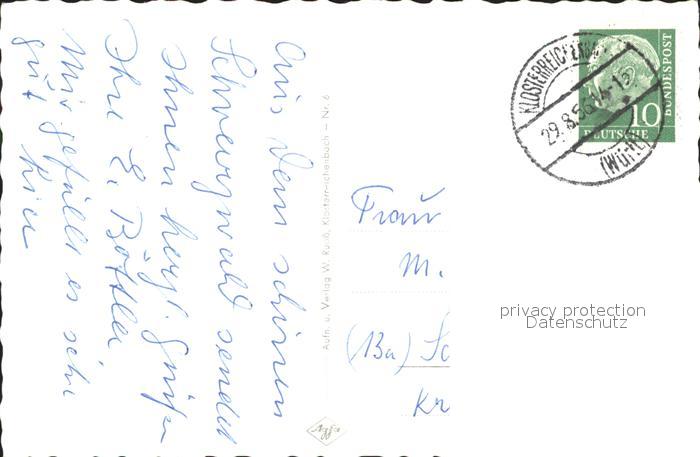 Aus dem schönen
Schwarzwald sendet
Ihnen herzl. Grüße
Ihre E.
Mir gefällt es sehr
gut hier
Aufn. u. Verlag W. Klosterreichenbach - Nr. 6
Agfa
KLOSTERREICHENBACH
29.8.56
(Württ)
10
DEUTSCHE
BUNDESPOST
Frau
M.
(13a) Sc
Kr
privacy protection
Datenschutz